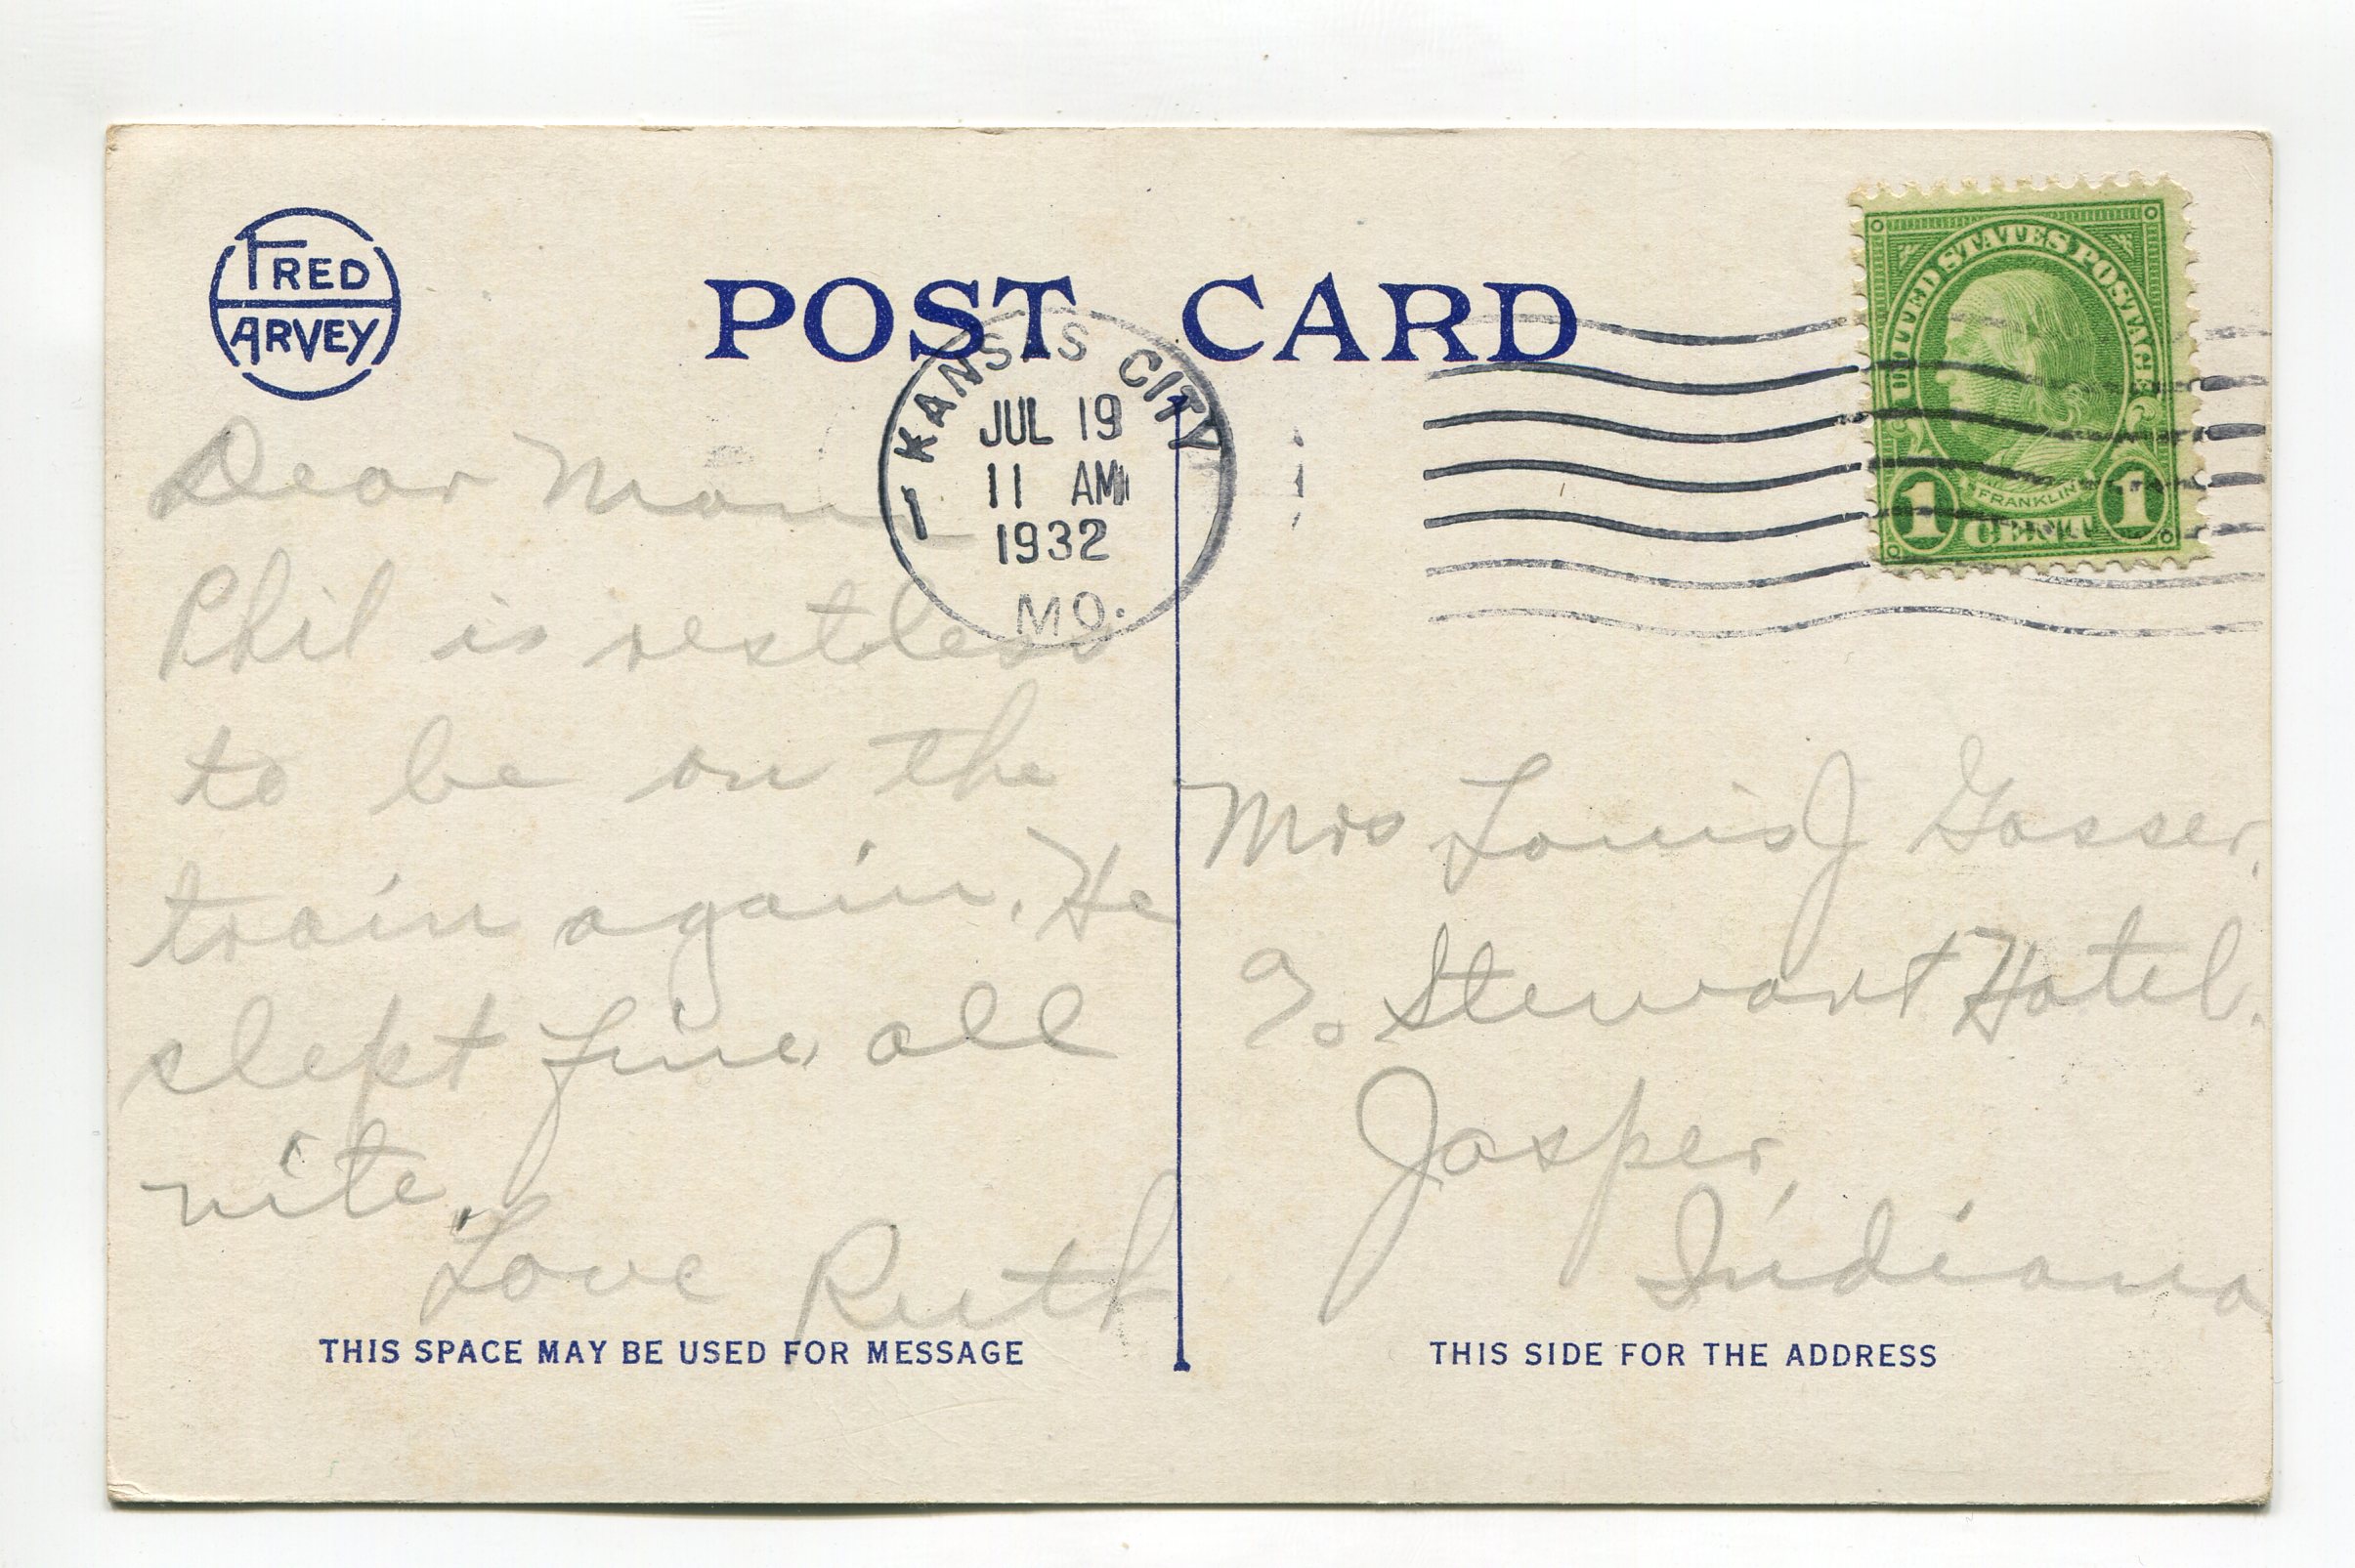 FRED
HARVEY
POST CARD
UNITED STATES POSTAGE
FRANKLIN
1 CENT 1
KANSAS CITY
JUL 19
11 AM
1932
MO.
1
Dear Mom
Phil is restless
to be on the
train again. He
slept fine all
nite.
Love Ruth
Mrs Louis J Gasser.
% Stewart Hotel.
Jasper,
Indiana
THIS SPACE MAY BE USED FOR MESSAGE
THIS SIDE FOR THE ADDRESS